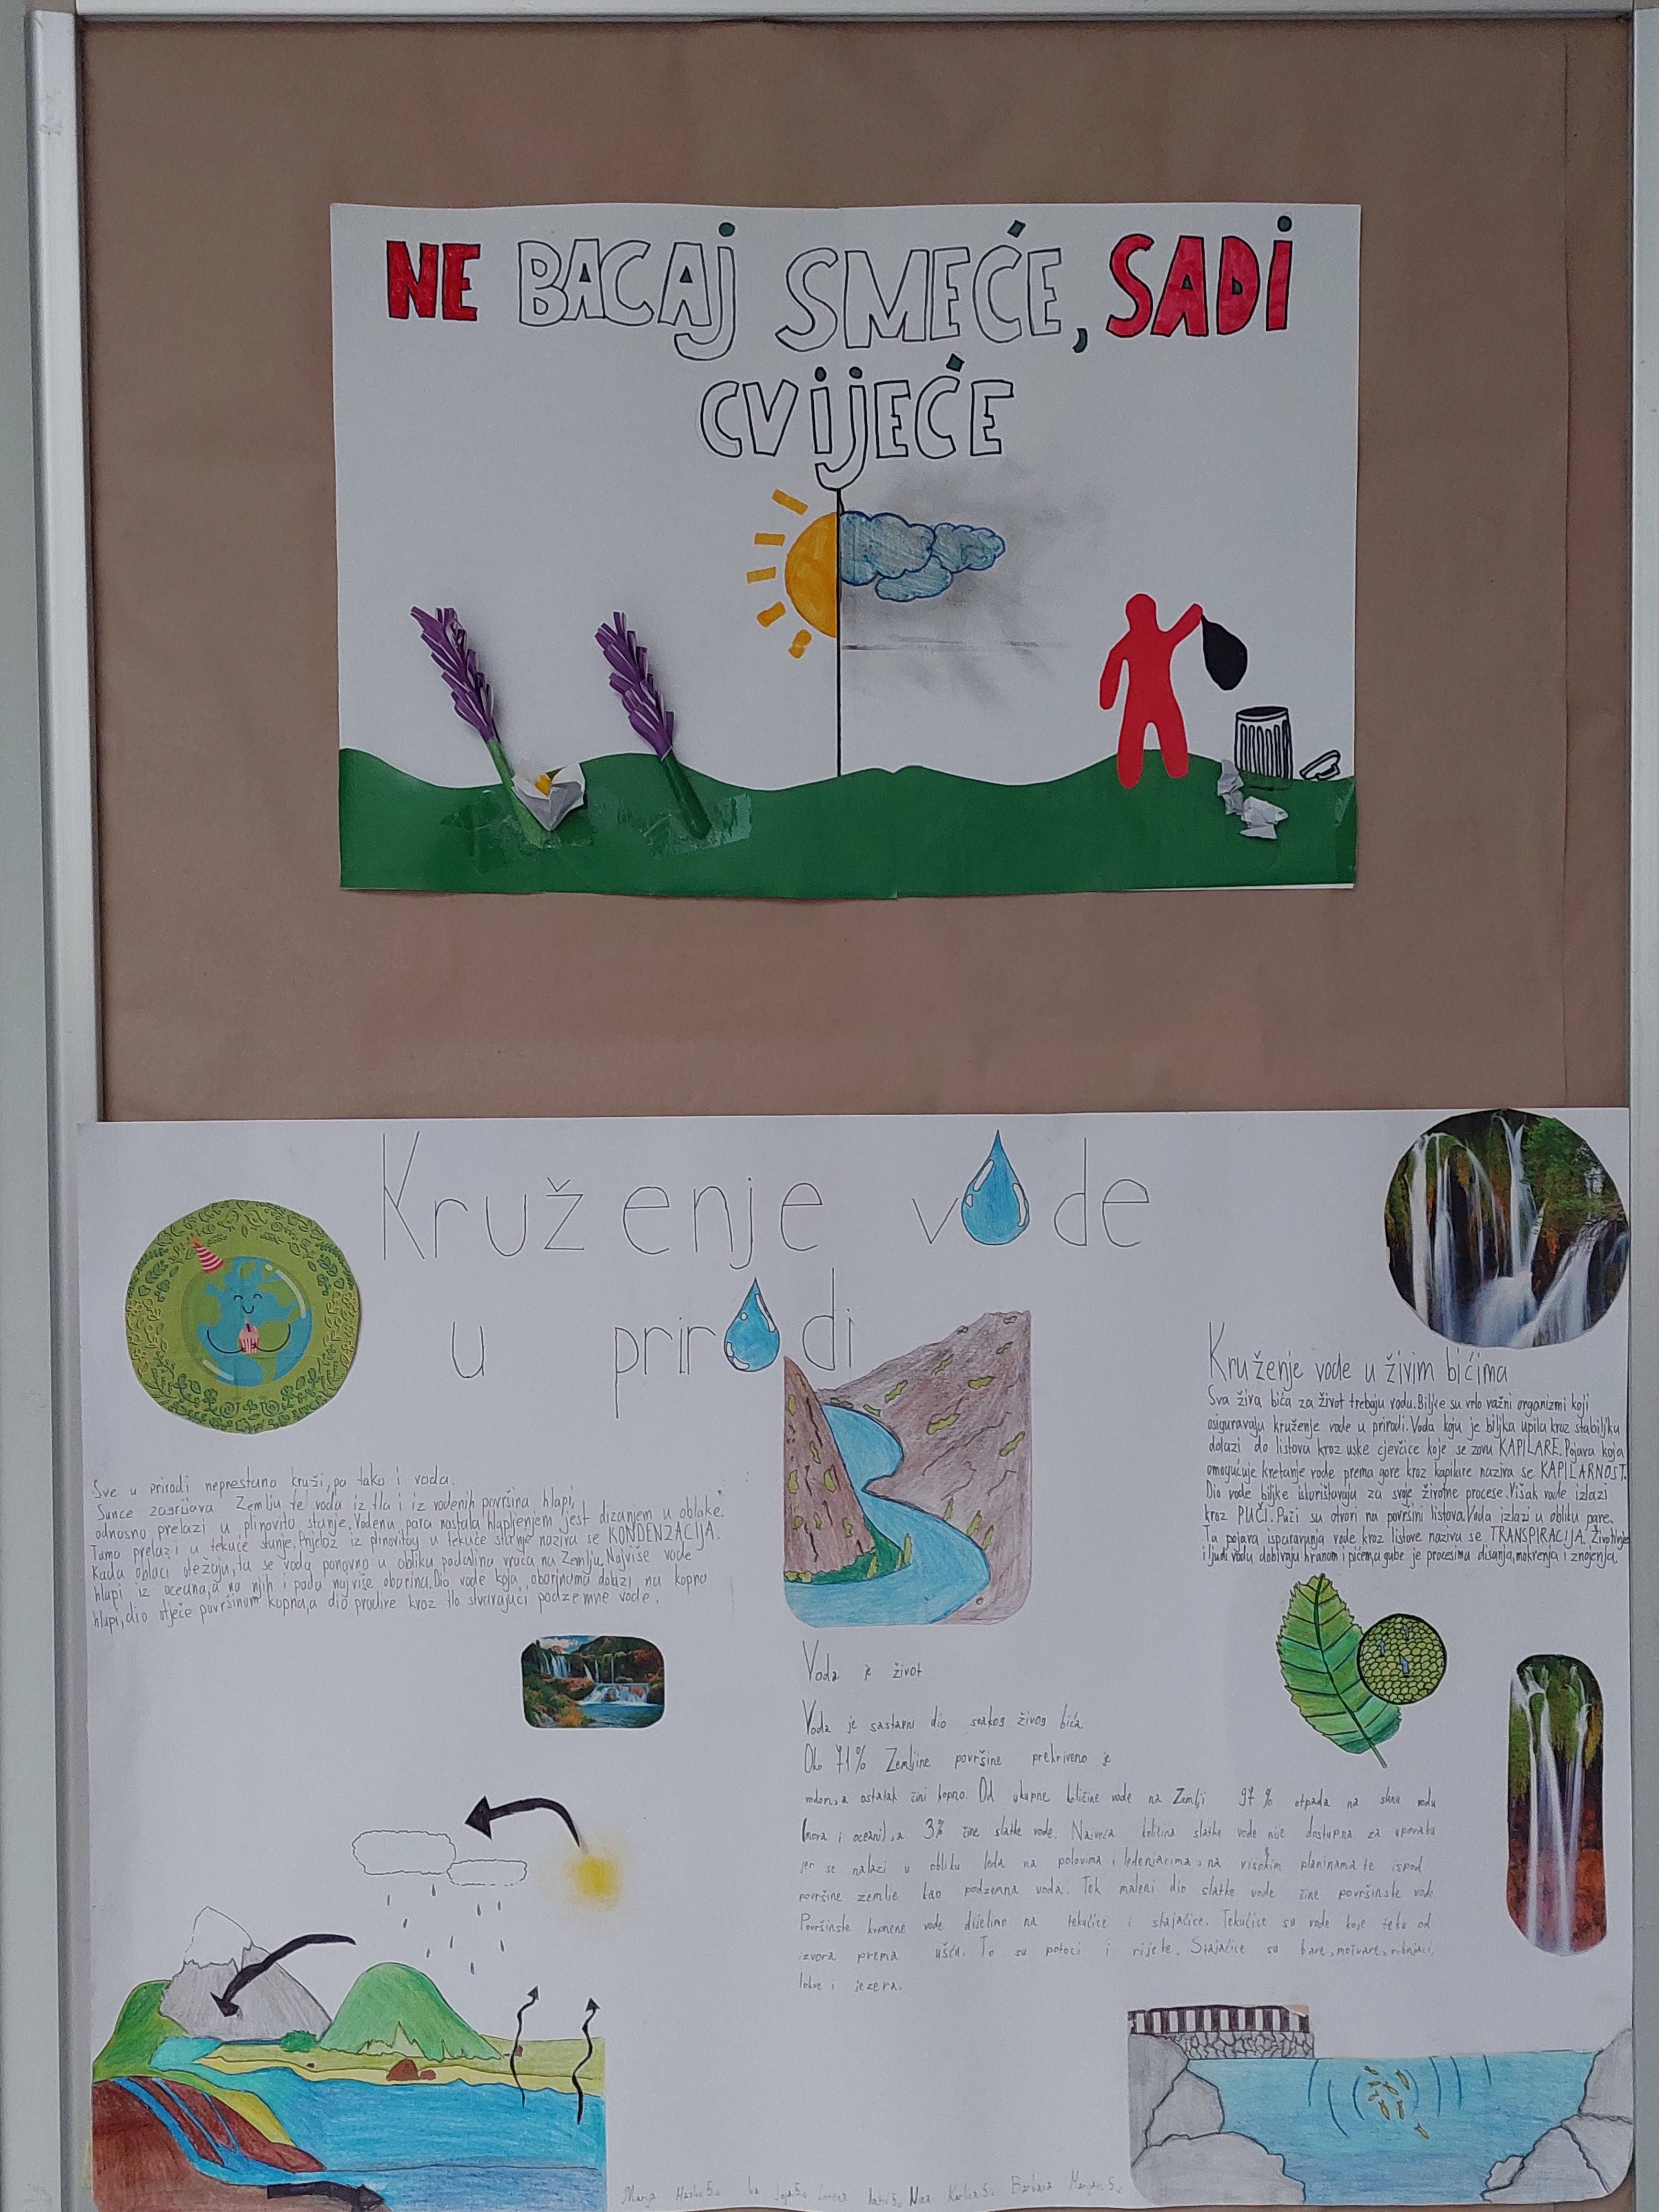 NE BACAJ SMEĆE, SADI
CVIJEĆE
Kruženje vode
u prirodi
Sve u prirodi neprestano kruži, pa tako i voda.
Sunce zagrijava Zemlju te voda iz tla i iz vodenih površina hlapi,
odnosno prelazi u plinovito stanje. Vodena para nastala hlapljenjem jest dizanjem u oblake.
Tamo prelazi u tekuće stanje. Prijelaz iz plinovitog u tekuće stanje naziva se KONDENZACIJA.
Kada oblaci otežaju, ta se voda ponovno u obliku padalina vraća na Zemlju. Najviše vode
hlapi iz oceana, a na njih i pada najviše oborina. Dio vode koja oborinama dolazi na kopno
hlapi, dio otječe površinom kopna, a dio prodire kroz tlo stvarajući podzemne vode.
Kruženje vode u živim bićima
Sva živa bića za život trebaju vodu. Biljke su vrlo važni organizmi koji
osiguravaju kruženje vode u prirodi. Voda koju je biljka upila kroz stabiljku
dolazi do listova kroz uske cjevčice koje se zovu KAPILARE. Pojava koja
omogućuje kretanje vode prema gore kroz kapilare naziva se KAPILARNOST.
Dio vode biljke iskorištavaju za svoje životne procese. Višak vode izlazi
kroz PUČI. Puči su otvori na površini listova. Voda izlazi u obliku pare.
Ta pojava isparavanja vode kroz listove naziva se TRANSPIRACIJA. Životinje
i ljudi vodu dobivaju hranom i pićem, a gube je procesima disanja, mokrenja i znojenja.
Voda je život
Voda je sastavni dio svakog živog bića.
Oko 71% Zemljine površine prekriveno je
vodom, a ostatak čini kopno. Od ukupne količine vode na Zemlji 97% otpada na slanu vodu
(mora i oceani), a 3% čine slatke vode. Najveća količina slatke vode nije dostupna za uporabu
jer se nalazi u obliku leda na polovima i ledenjacima, na visokim planinama te ispod
površine zemlje kao podzemna voda. Tek maleni dio slatke vode čine površinske vode.
Površinske kopnene vode dijelimo na tekućice i stajaćice. Tekućice su vode koje teku od
izvora prema ušću. To su potoci i rijeke. Stajaćice su bare, močvare, ribnjaci,
lokve i jezera.
Marija 5.c Iva 5.c Lorena 5.c Nina Karlica 5.c Barbara 5.c